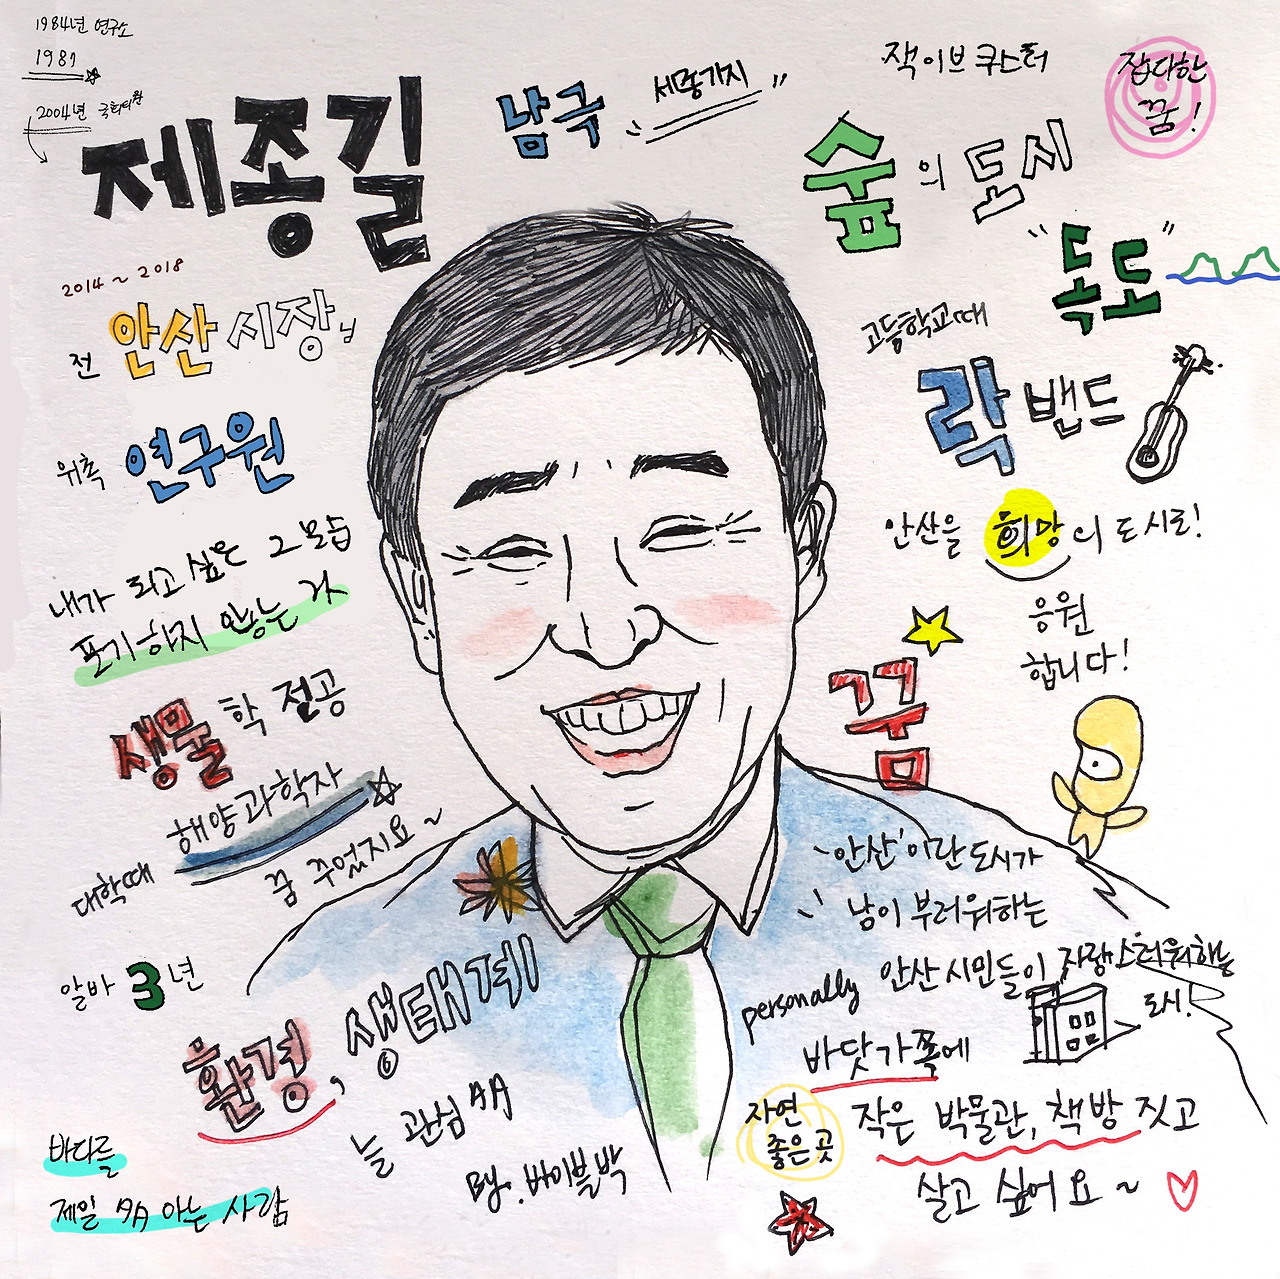 1984년 연구소
1987
2004년 국회의원
제종길
2014 ~ 2018
전 안산 시장님
위촉 연구원
내가 되고 싶은 그 모습
포기하지 않는 거
생물학 전공
해양과학자
대학때 꿈 꾸었지요~
알바 3년
환경, 생태계
늘 관심
By. 바이블 박
바다를
제일 아는 사람
남극 세종기지 "
잭이브 쿠스터
잡다한
꿈!
숲의 도시
"독도"
고등학교때
락 밴드
안산을 희망의 도시로!
응원
합니다!
꿈
'안산'이란 도시가
남이 부러워하는
안산 시민들이 자랑스러워하는
도시!
personally
바닷가쪽에
자연
좋은 곳
작은 박물관, 책방 짓고
살고 싶어요~